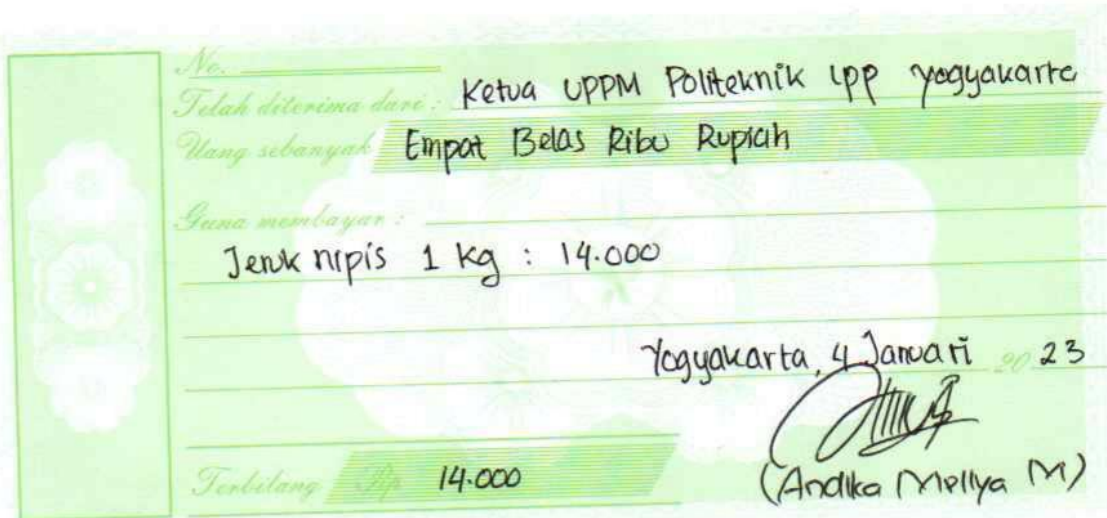 No.
Telah diterima dari : Ketua UPPM Politeknik LPP Yogyakarta
Uang sebanyak Empat Belas Ribu Rupiah
Guna membayar :
Jeruk nipis 1 kg : 14.000
Yogyakarta, 4 Januari 2023
Terbilang Rp 14.000
(Andika Mellya M)